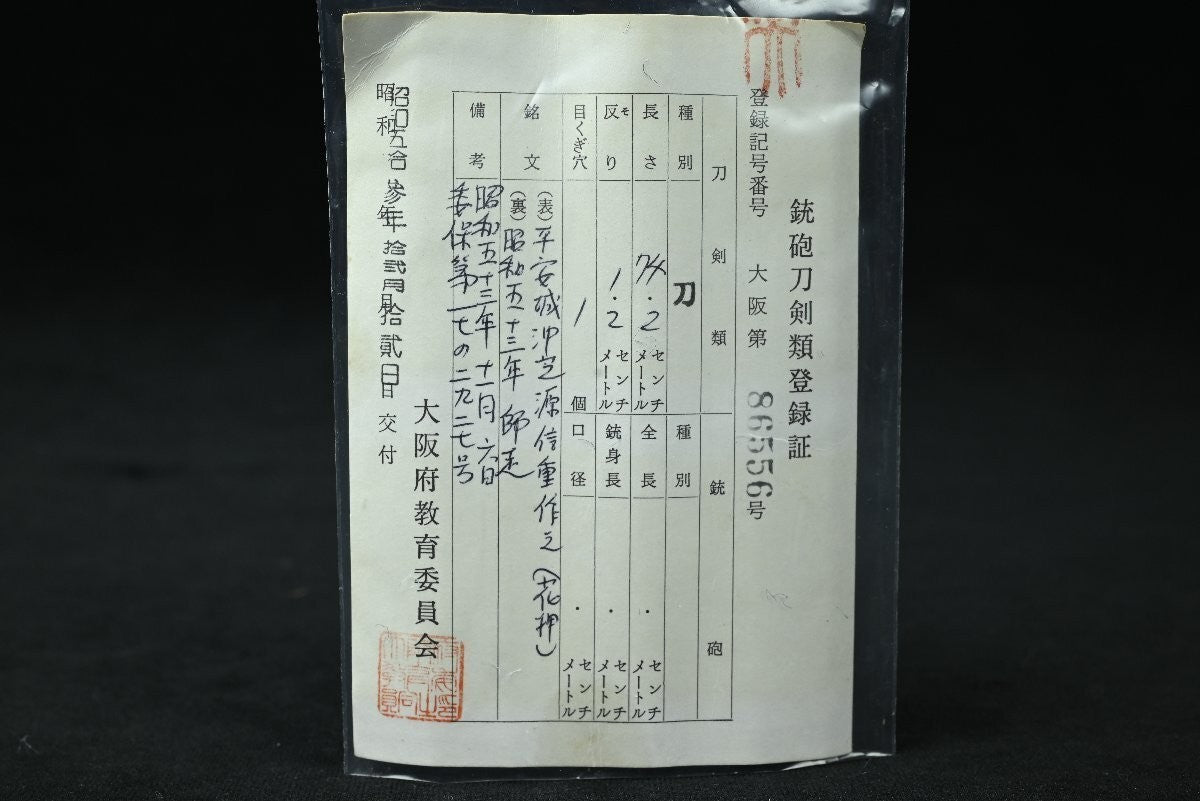 銃砲刀剣類登録証
登録記号番号 大阪第 86556号
刀剣類
銃砲
種別 刀
種別
長さ 74.2 センチメートル
全長 . センチメートル
反り ソリ 1.2 センチメートル
銃身長 . センチメートル
目くぎ穴 1 個
口径 . センチメートル
銘文 (表) 平安城沖宗源信重作之(花押)
(裏) 昭和五十三年 師走
備考 昭和五十三年十一月六日
委保第一七の二九二七号
昭和 年 月 日 交付
昭和五合参年拾弐月拾貳日
大阪府教育委員会